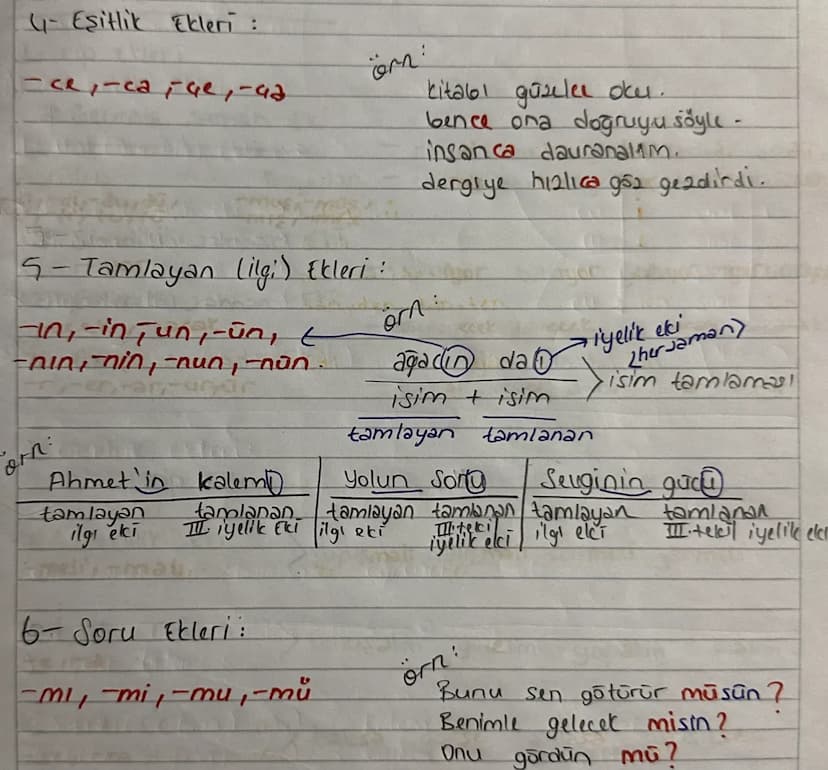 4- Eşitlik Ekleri :
-ce, -ca, -çe, -ça
örn:
kitabı güzelce oku.
bence ona doğruyu söyle.
insanca davranalım.
dergiye hızlıca göz gezdirdi.
5- Tamlayan (ilgi) Ekleri :
-ın, -in, -un, -ün,
-nın, -nin, -nun, -nün.
örn:
ağacın dalı
iyelik eki
(her zaman)
isim + isim
isim tamlaması
tamlayan tamlanan
örn:
Ahmet'in kalemi
tamlayan tamlanan
ilgi eki III iyelik Eki
Yolun sonu
tamlayan tamlanan
ilgi eki III.tekil
iyelik eki
Sevginin gücü
tamlayan tamlanan
ilgi eki III.tekil iyelik eki
6- Soru Ekleri :
-mı, -mi, -mu, -mü
örn:
Bunu sen götürür müsün?
Benimle gelecek misin?
Onu gördün mü?